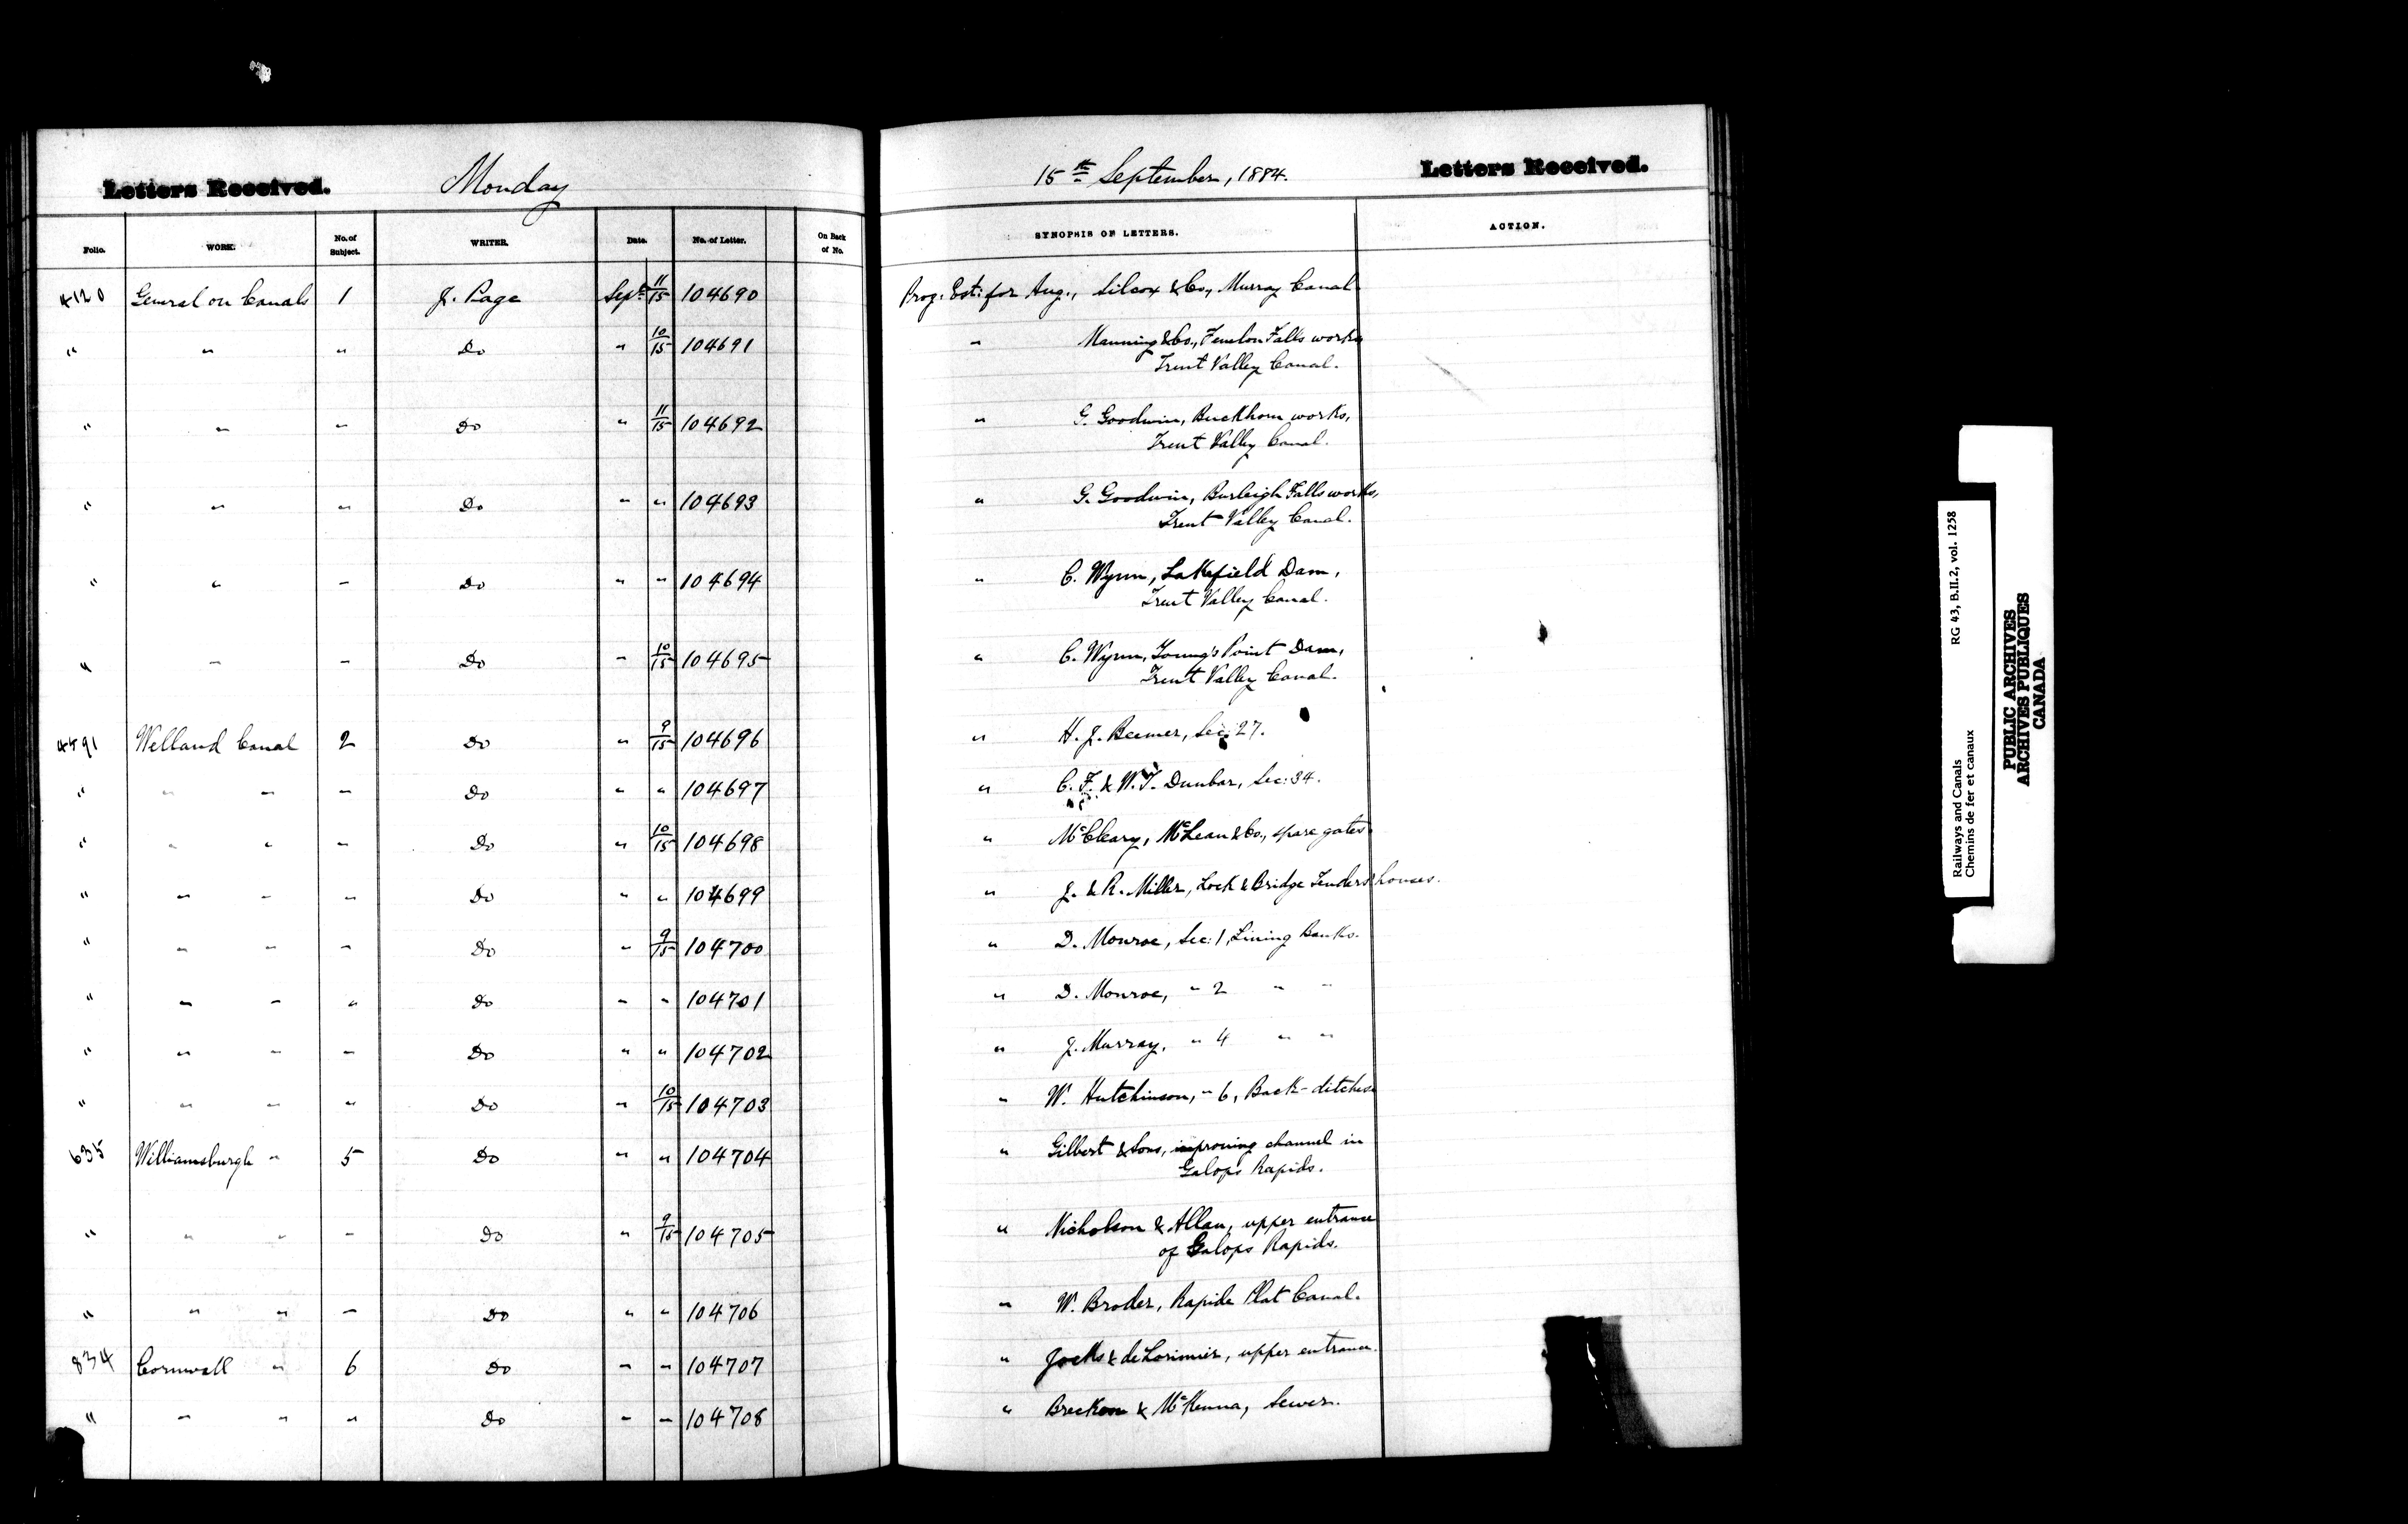 Letters Received. Monday
15th September, 1884. Letters Received.
Folio. WORK. No. of Subject. WRITER. Date. No. of Letter. On Back of No. SYNOPSIS OF LETTERS. ACTION.
4120 General on Canals 1 J. Page Sept 11/15 104690 Prog: Est: for Aug., Silcox & Co., Murray Canal
" " " Do " 10/15 104691 " Manning & Co., Fenelon Falls works
Trent Valley Canal.
" " " Do " 11/15 104692 " G. Goodwin, Buckhorn works,
Trent Valley Canal.
" " " Do " " 104693 " G. Goodwin, Burleigh Falls works,
Trent Valley Canal.
" " " Do " " 104694 " C. Wynn, Lakefield Dam,
Trent Valley Canal.
" " " Do " 10/15 104695 " C. Wynn, Young's Point Dam,
Trent Valley Canal.
4591 Welland Canal 2 Do " 9/15 104696 " H. J. Beemer, Sec: 27.
" " " " Do " " 104697 " C. F. & W. T. Dunbar, Sec: 34.
" " " " Do " 10/15 104698 " McCleary, McLean & Co., spare gates
" " " " Do " " 104699 " J. & R. Miller, Lock & Bridge Tenders houses.
" " " " Do " 9/15 104700 " D. Monroe, Sec: 1, Lining Banks.
" " " " Do " " 104701 " D. Monroe, " 2 " "
" " " " Do " " 104702 " J. Murray, " 4 " "
" " " " Do " 10/15 104703 " W. Hutchinson, " 6, Back-ditches
635 Williamsburgh " 5 Do " " 104704 " Gilbert & Sons, improving channel in
Galops Rapids.
" " " " Do " 9/15 104705 " Nicholson & Allan, upper entrance
of Galops Rapids.
" " " " Do " " 104706 " W. Broder, Rapide Plat Canal.
834 Cornwall " 6 Do " " 104707 " Jocks & de Lorimier, upper entrance.
" " " " Do " " 104708 " Brecken & McKenna, Sewer.
Railways and Canals RG 43, B.II.2, vol. 1258
Chemins de fer et canaux
PUBLIC ARCHIVES
ARCHIVES PUBLIQUES
CANADA